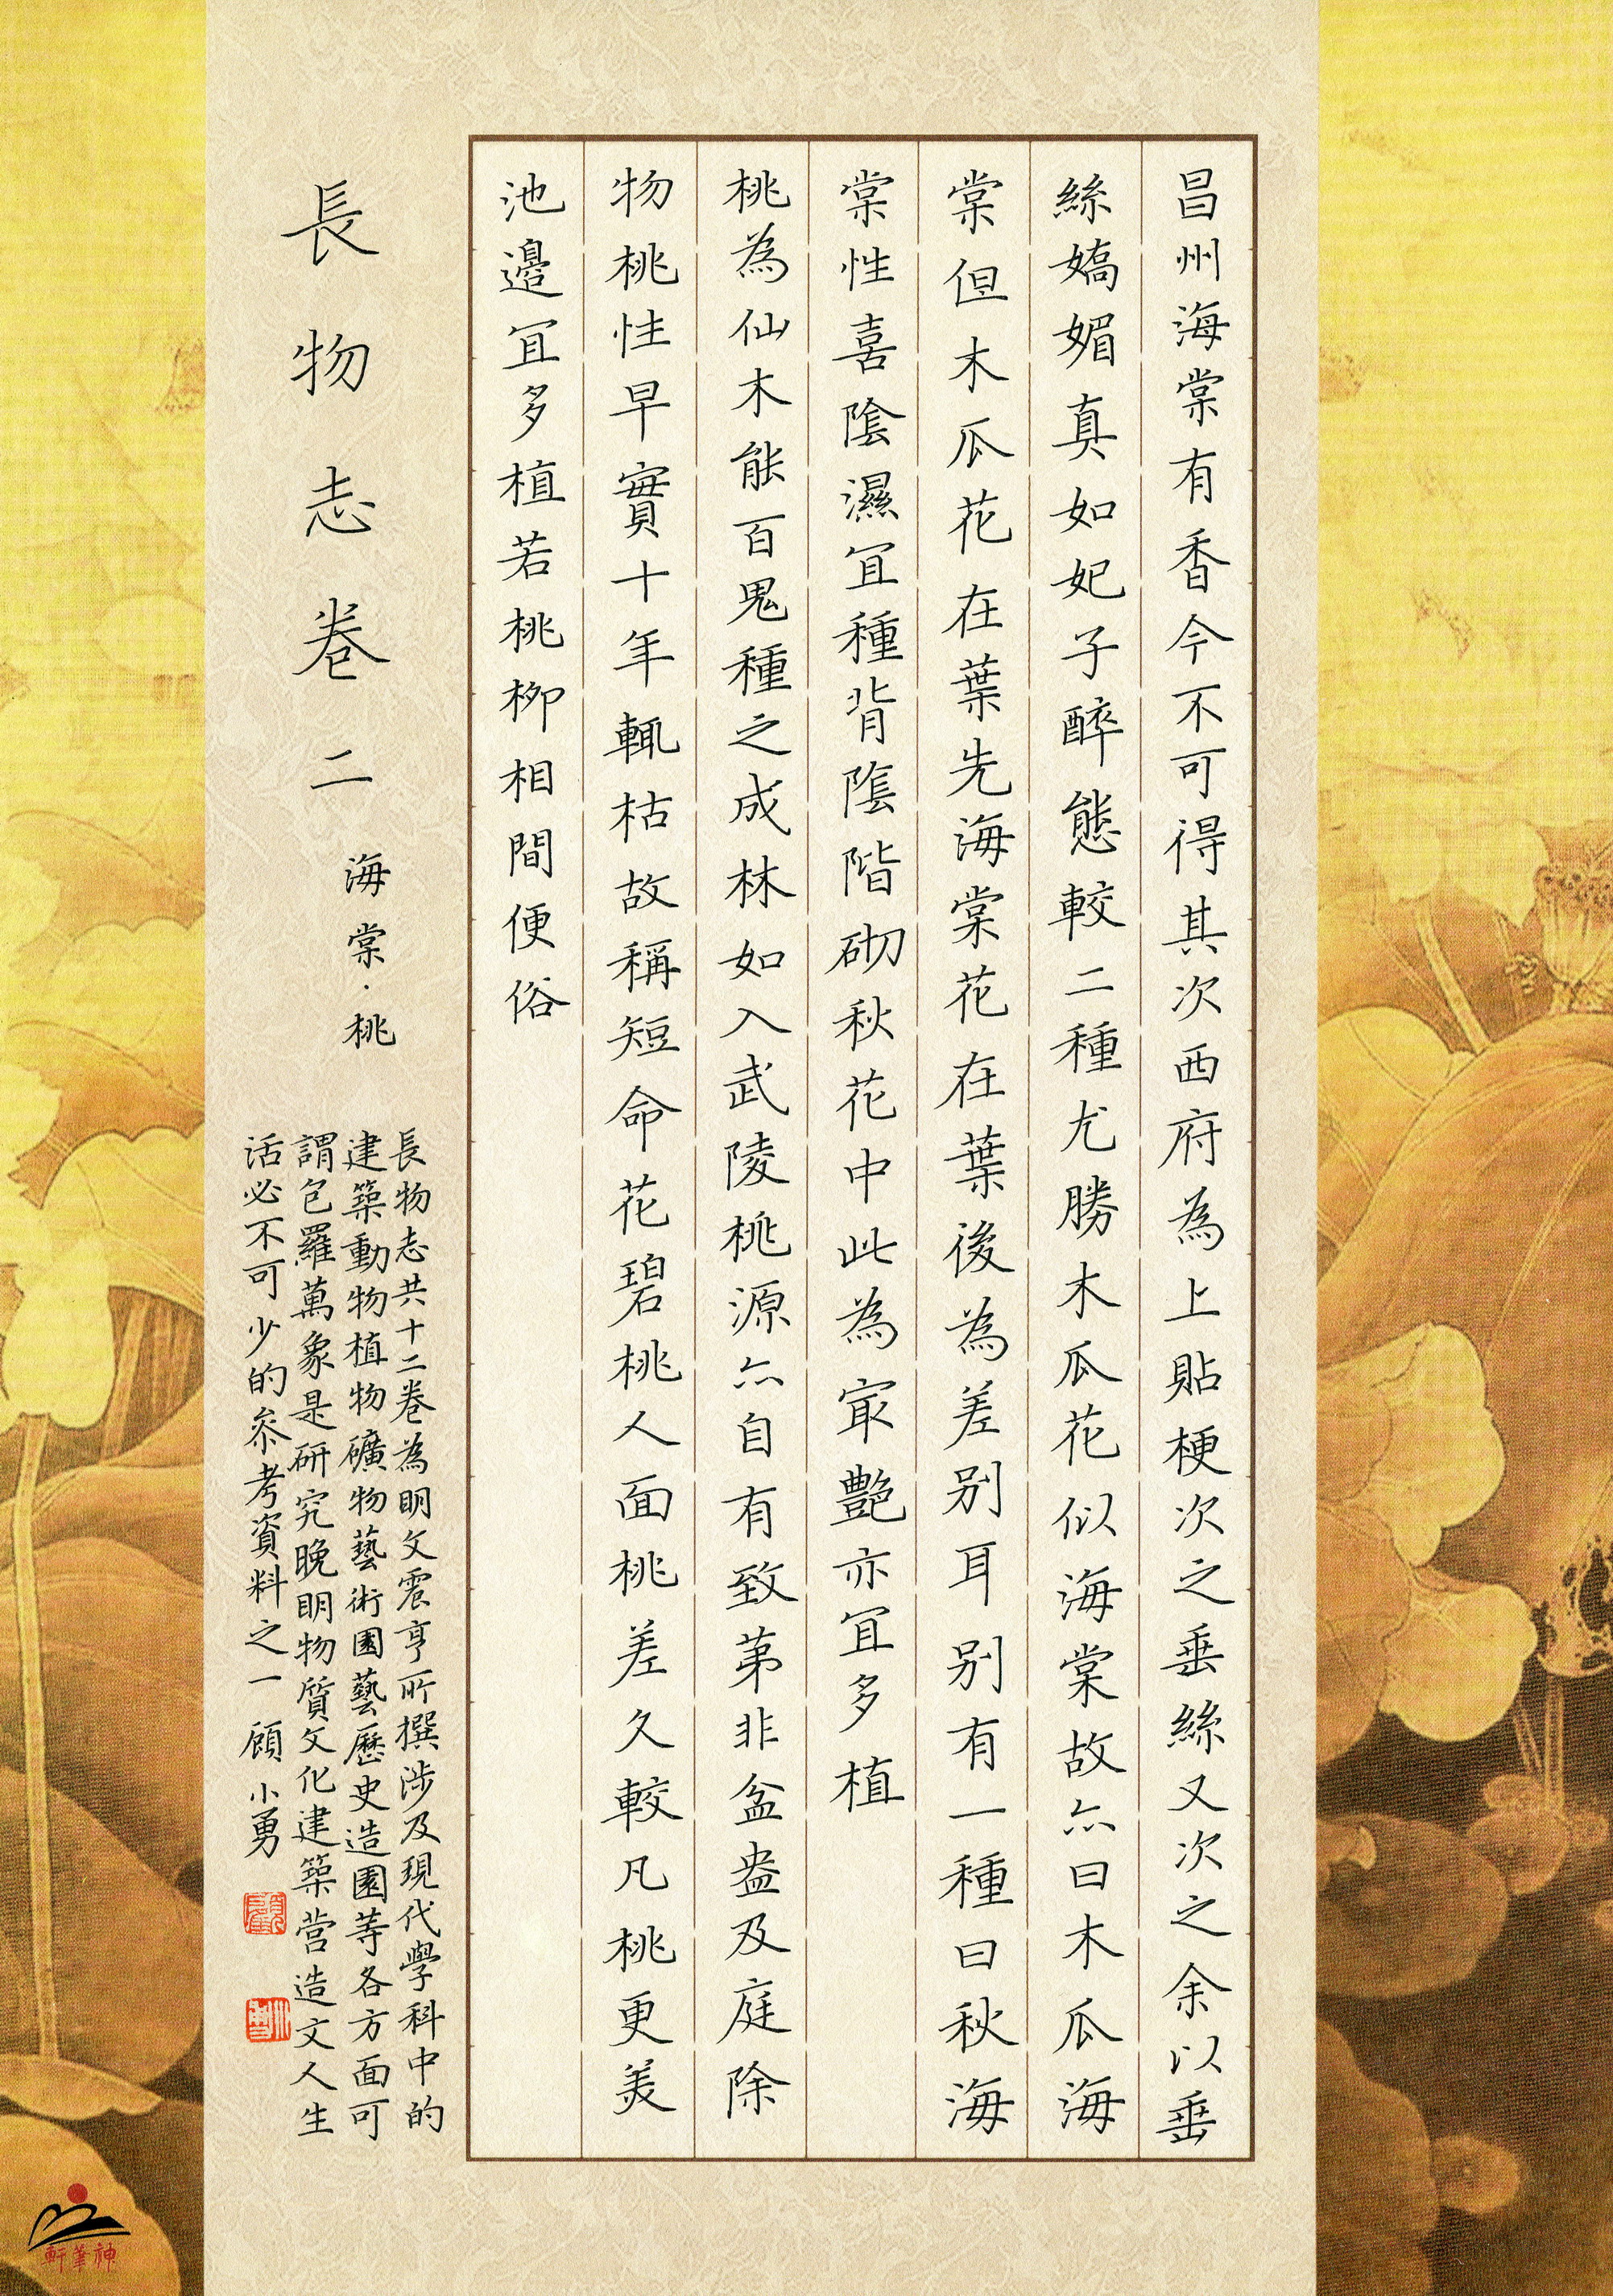 昌州海棠有香今不可得其次西府為上貼梗次之垂絲又次之余以垂
絲嬌媚真如妃子醉態較二種尤勝木瓜花似海棠故亦曰木瓜海
棠但木瓜花在葉先海棠花在葉後為差別耳別有一種曰秋海
棠性喜陰濕宜種背陰階砌秋花中此為最艷亦宜多植
桃為仙木能百鬼種之成林如入武陵桃源亦自有致第非盆盎及庭除
物桃性早實十年輒枯故稱短命花碧桃人面桃差久較凡桃更美
池邊宜多植若桃柳相間便俗
長物志卷二
海棠·桃
長物志共十二卷為明文震亨所撰涉及現代學科中的
建築動物植物礦物藝術園藝歷史造園等各方面可
謂包羅萬象是研究晚明物質文化建築營造文人生
活必不可少的參考資料之一 顧小勇
神筆軒